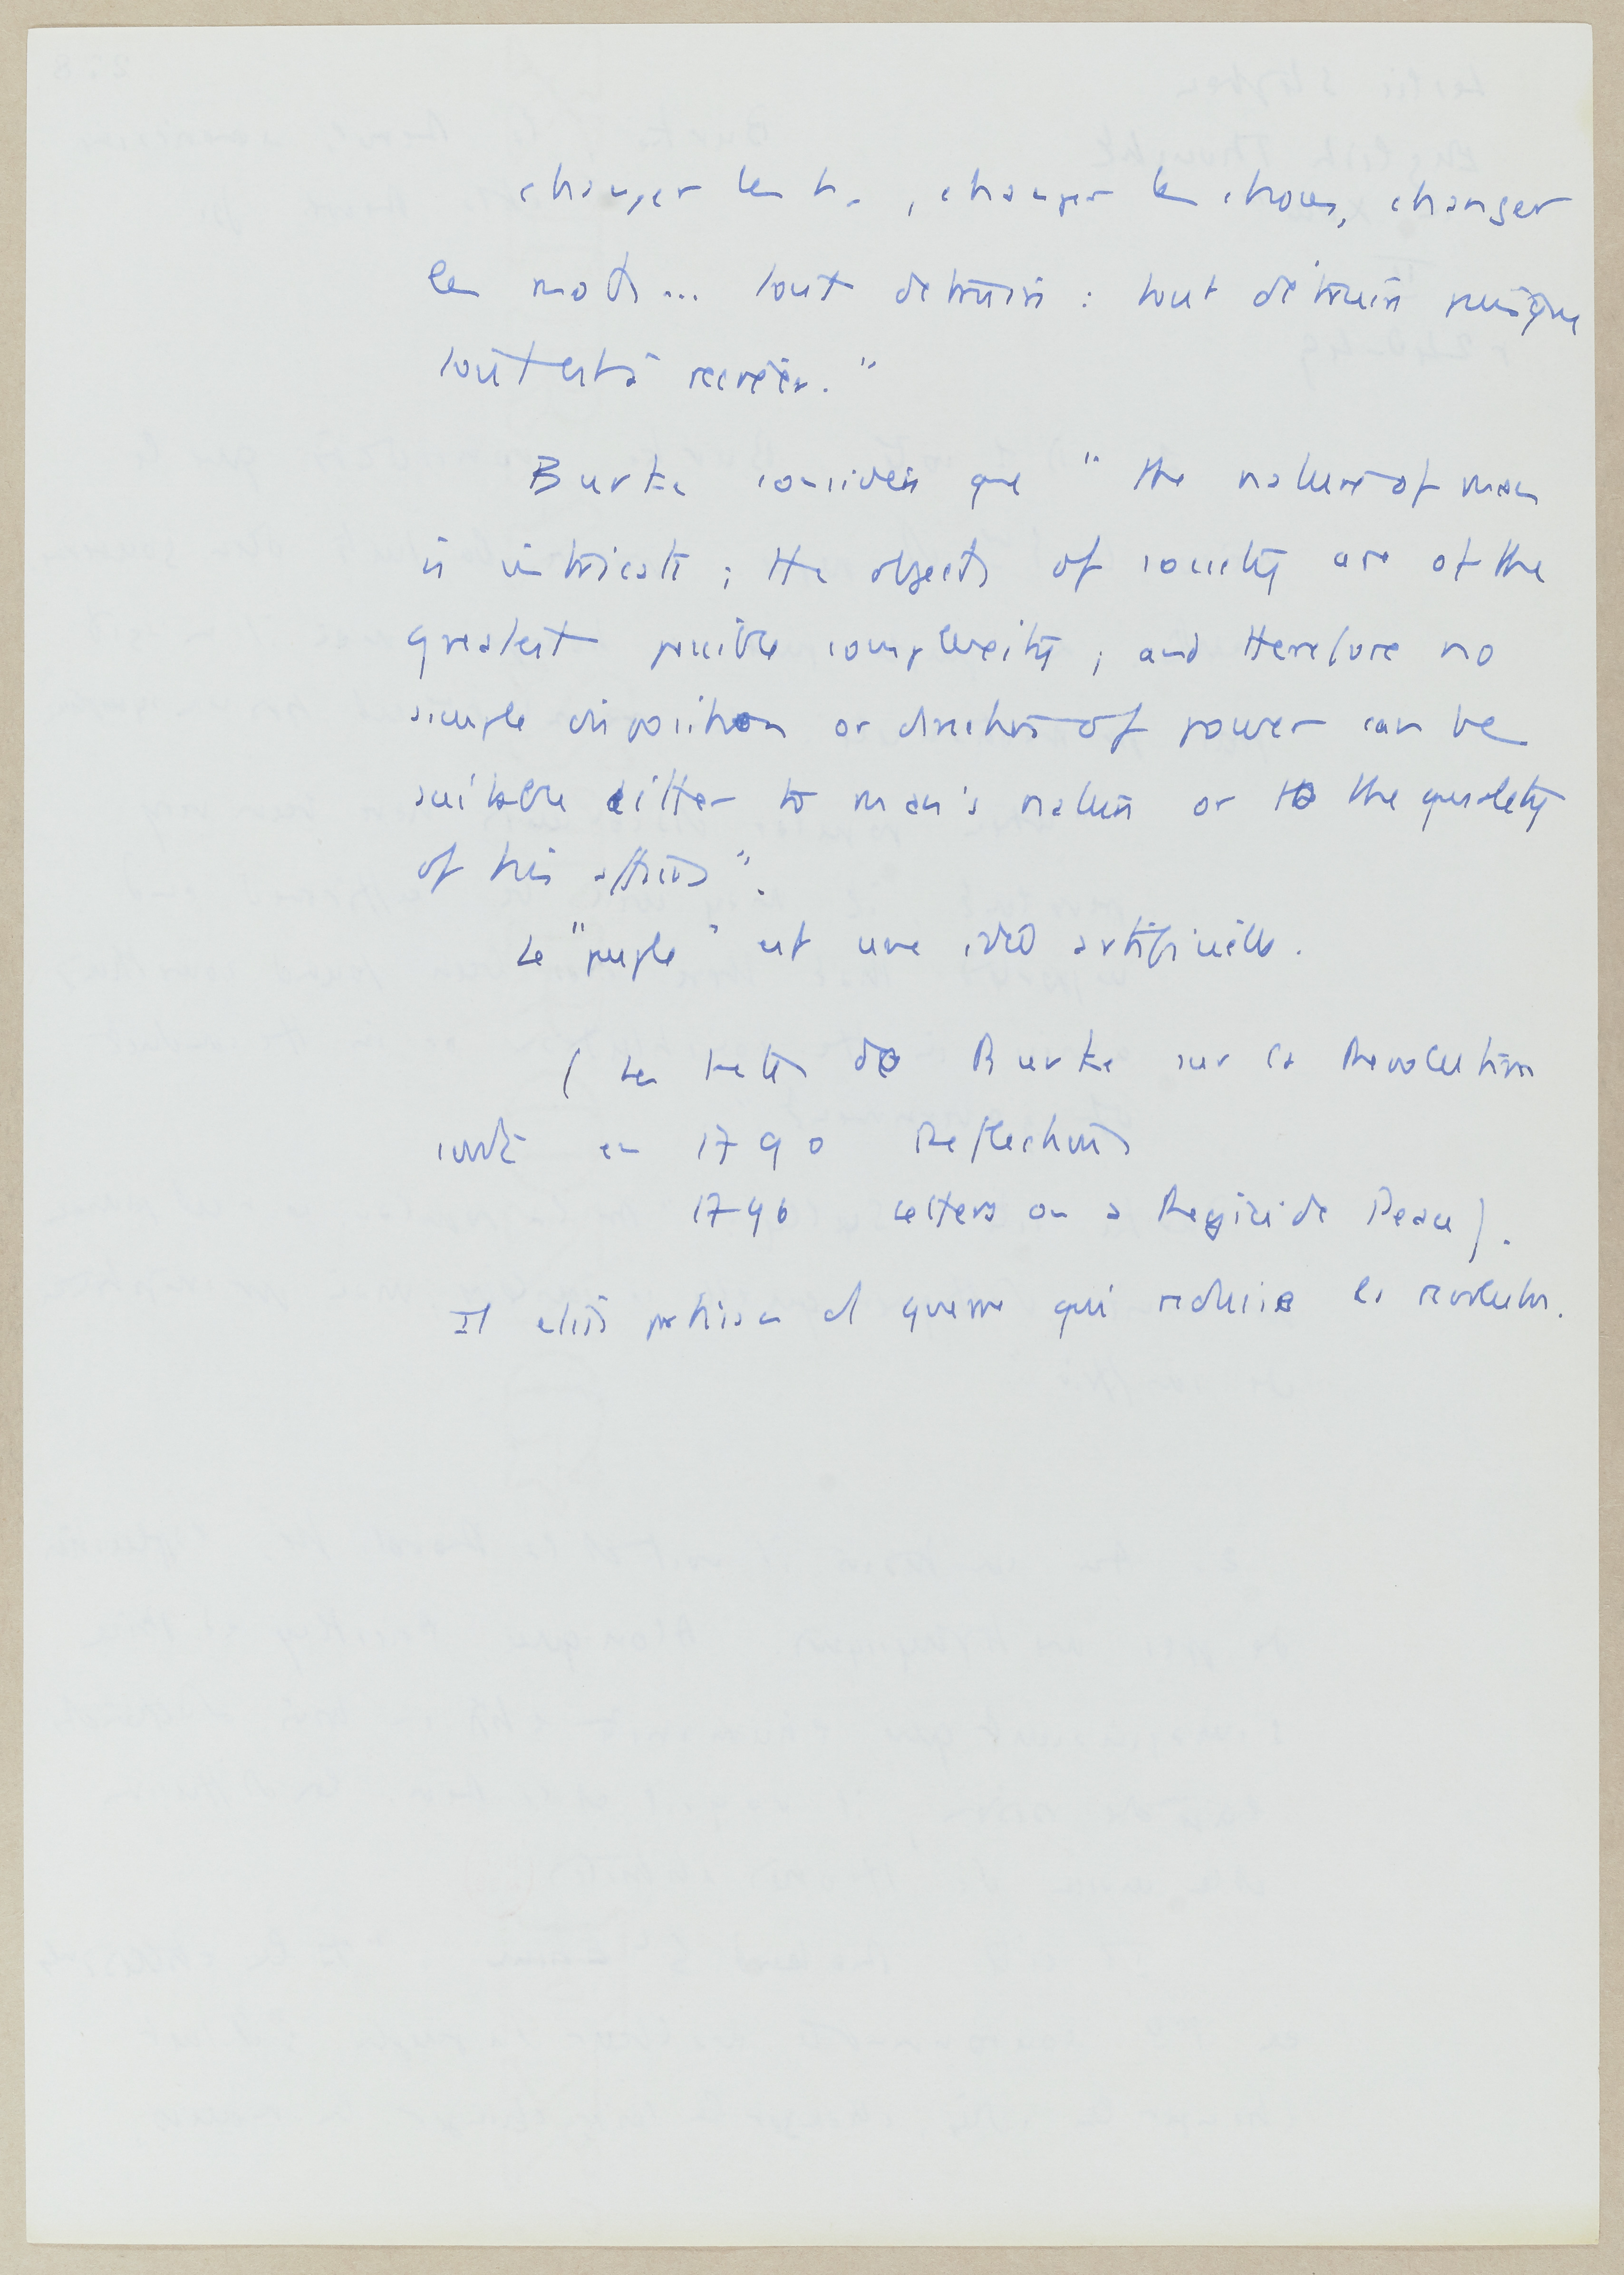 changer les h., changer les choses, changer
les mots... tout détruire : tout détruire puisque
tout est à recréer."
Burke considère que "the nature of man
is intricate ; the objects of society are of the
greatest possible complexity ; and therefore no
simple disposition or direction of power can be
suitable either to man's nature or to the quality
of his affairs".
Le "peuple" est une idée artificielle.
( Les textes de Burke sur la Révolution
sont en 1790 Reflections
1796 Letters on a Regicide Peace ).
Il était partisan d guerre qui réduise la révolution.